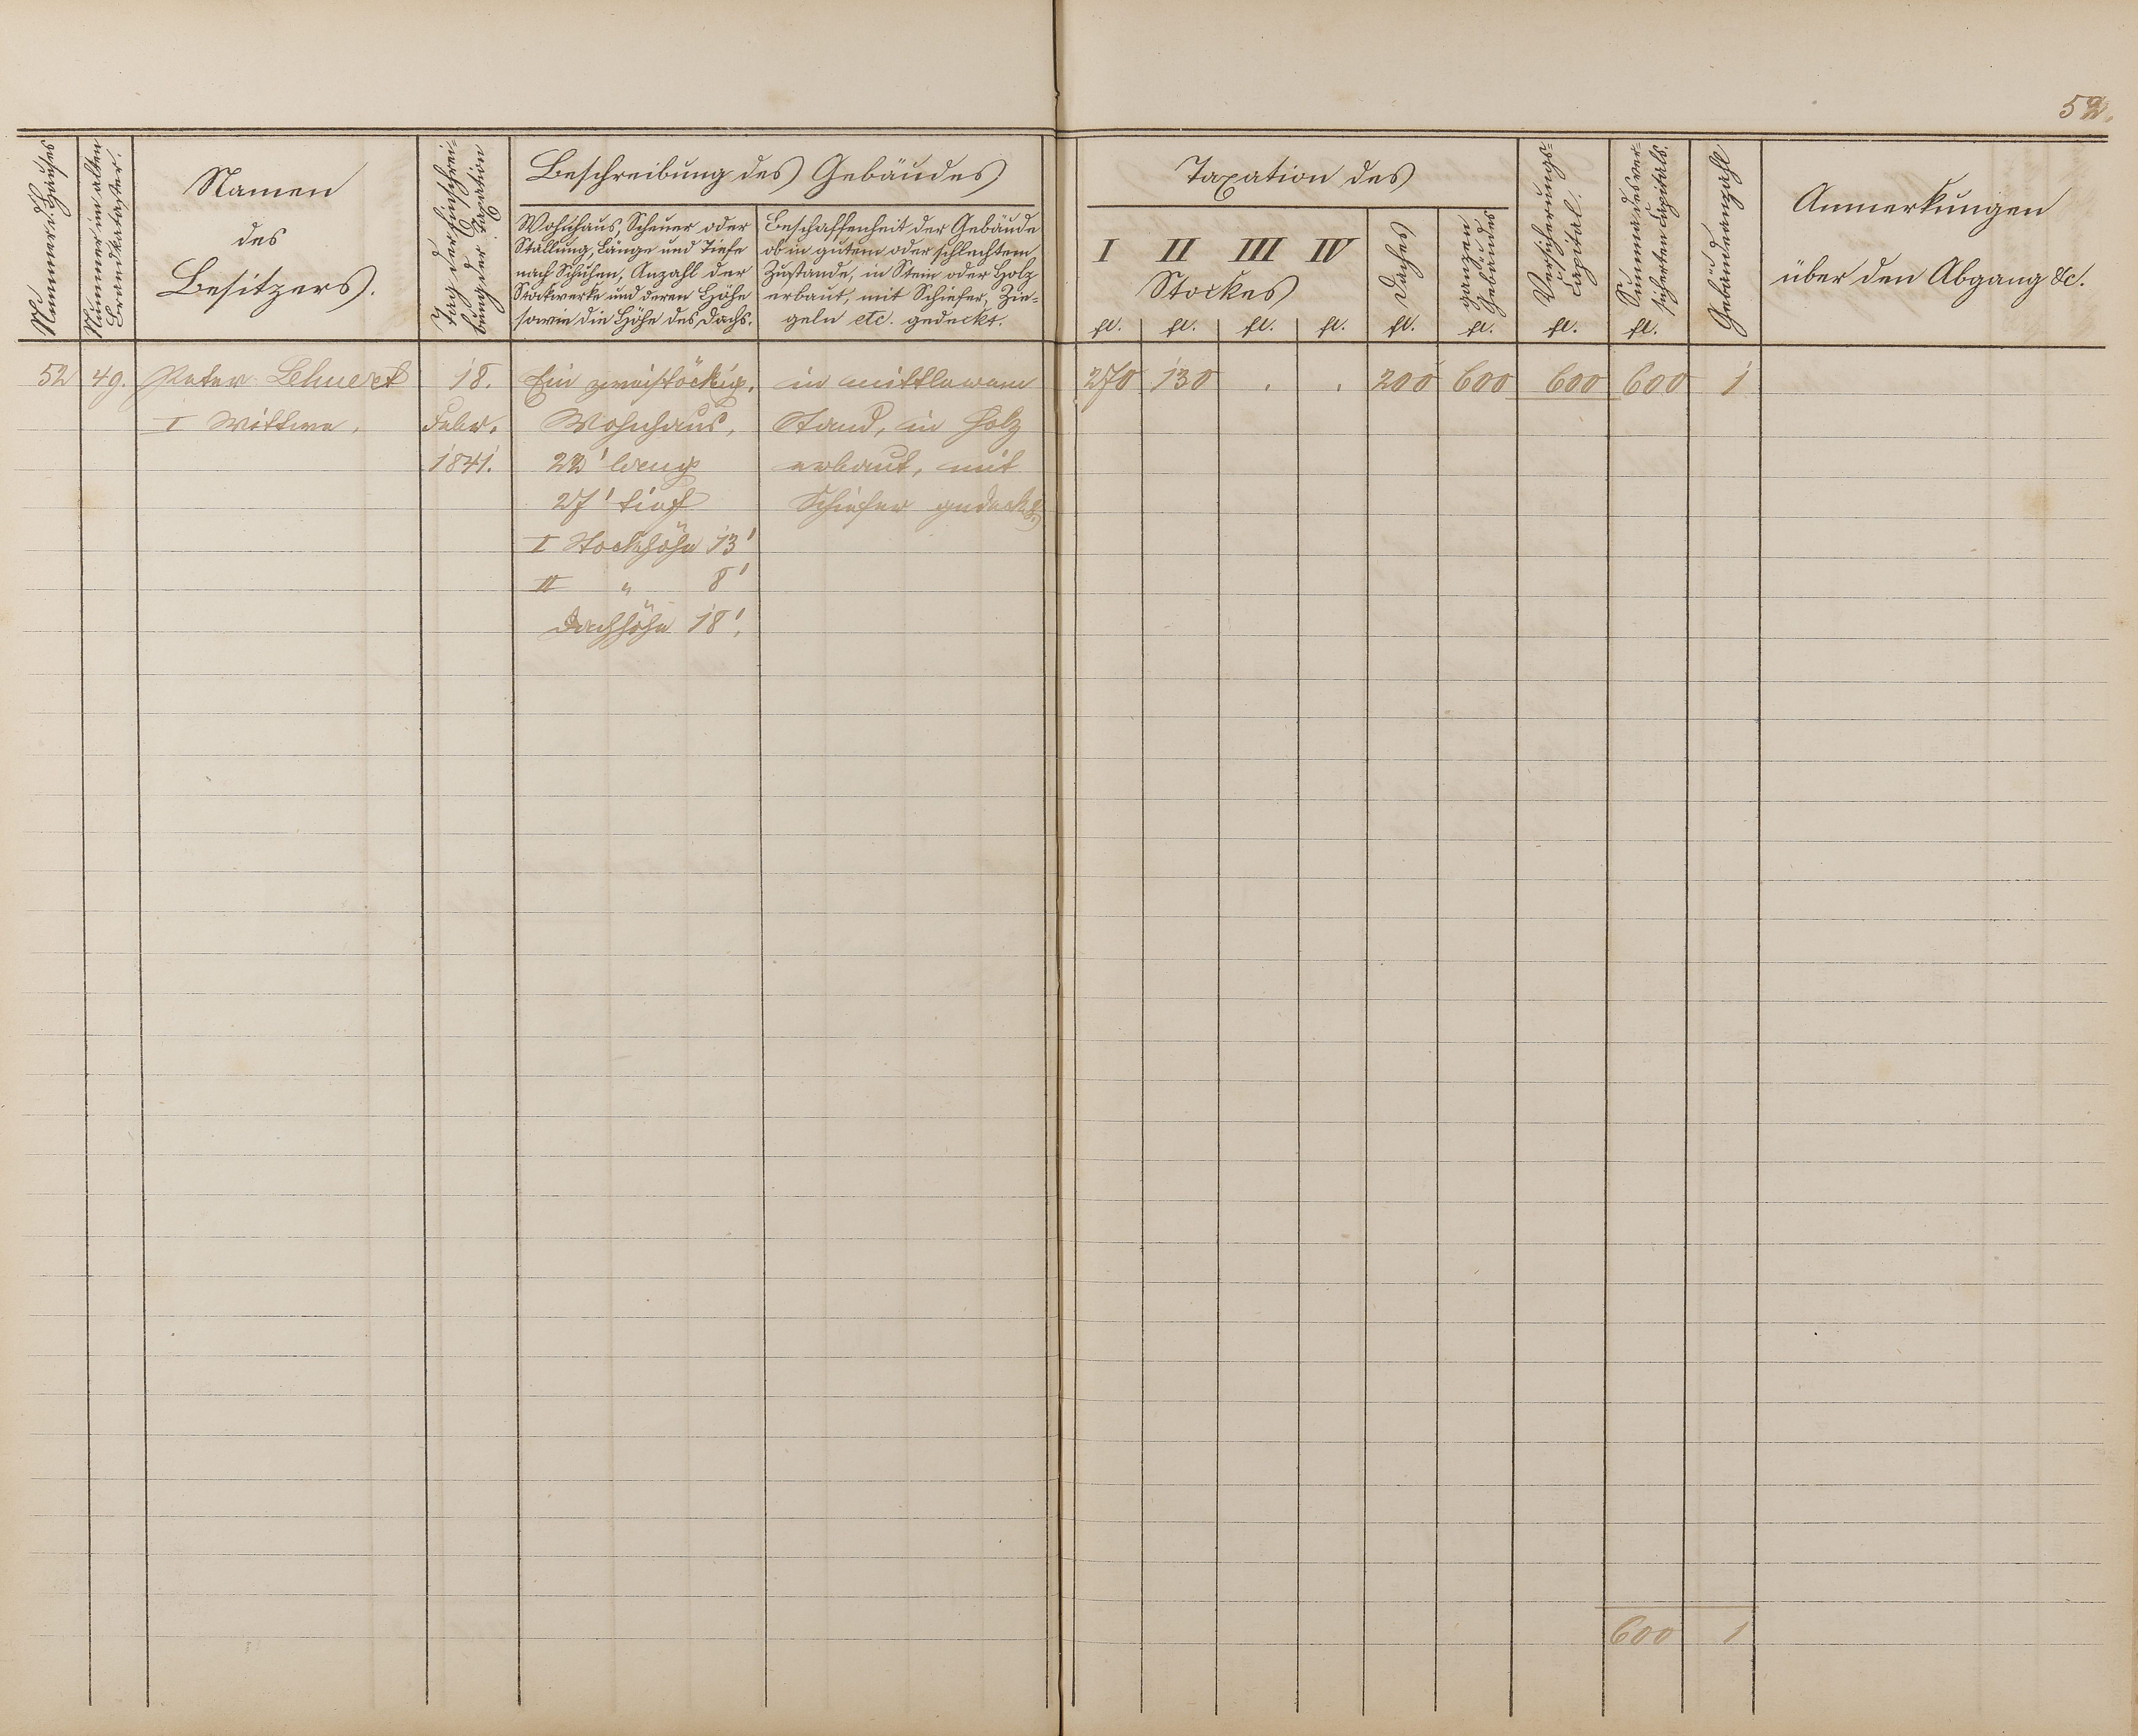 52.
Nummer d. Hauses
Nummer im alten
Brandkataster.
Namen
des
Besitzers.
Tag der Einschrei-
bung der Taxation
Beschreibung des Gebäudes
Wohnhaus, Scheuer oder
Stallung, Länge und Tiefe
nach Schuhen, Anzahl der
Stockwerke und deren Höhe
sowie die Höhe des Dachs.
Beschaffenheit der Gebäude
ob in gutem oder schlechtem
Zustande, in Stein oder Holz
erbaut, mit Schiefer, Zie-
geln etc. gedeckt.
Taxation des
I II III IV
Stockes
Daches
ganzen
Gebäudes
Versicherungs-
Capital.
Summa des ver-
sicherten Capitals.
Gebäudeanzahl
Anmerkungen
über den Abgang &c.
fl. fl. fl. fl. fl. fl. fl. fl.
52 49. Peter Lehnert 18. Ein zweistöckig. in mittlerem 270 130 . . 200 600 600 600 1
I Wittwe, Febr. Wohnhaus, Stand, in Holz
1841. 22' lang erbaut, mit
27' tief Schiefer gedeckt.
I Stockhöhe 13'
II " 8'
Dachhöhe 18'.
600 1